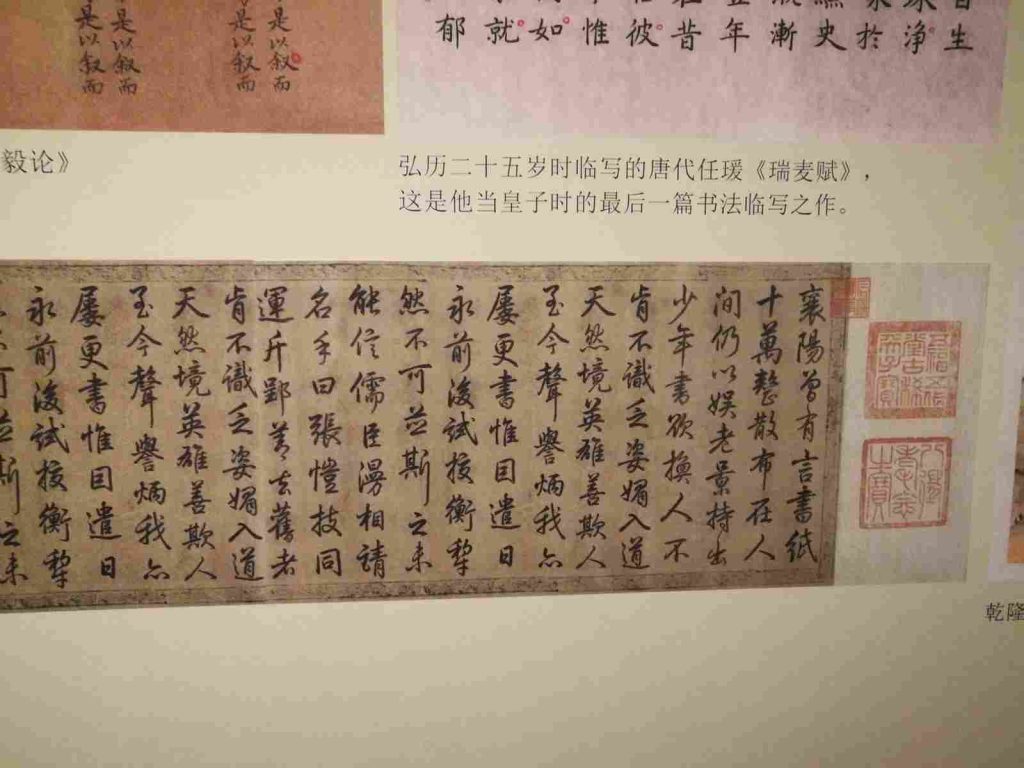 是以叙而
是以叙而
是以叙而
是以叙而
生
净
於
史
漸
年
昔
彼
惟
如
就
郁
毅论》
弘历二十五岁时临写的唐代任瑗《瑞麦赋》，
这是他当皇子时的最后一篇书法临写之作。
五福五代堂古稀天子寶
八徵耄念之寶
襄陽曾有言書紙
十萬整散布在人
間仍以娛老景持出
少年書欲換人不
肯不識乏姿媚入道
天然境英雄善欺人
至今聲譽炳我亦
屢更書惟目遣日
永前後試按衡犁
然不可並斯之未
能信儒臣漫相請
名手曰張愷技同
運斤郢若去舊者
肯不識乏姿媚入道
天然境英雄善欺人
至今聲譽炳我亦
屢更書惟目遣日
永前後試按衡犁
可並斯之未
乾隆